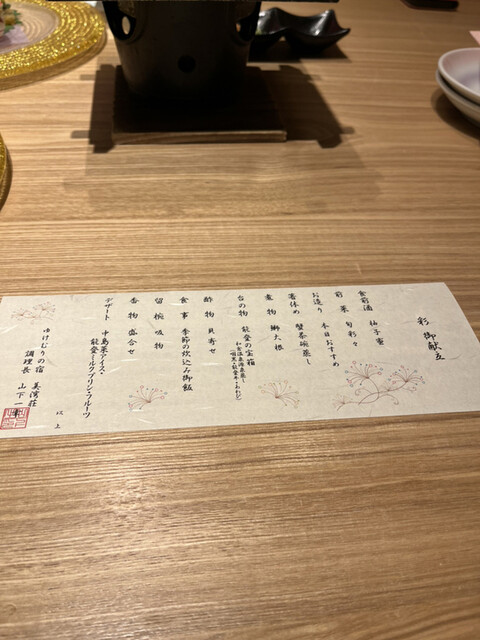 彩 御献立
食前酒 柚子蜜
前菜 旬彩々
お造り 本日おすすめ
箸休め 蟹茶碗蒸し
煮物 鰤大根
台の物 能登の宝箱
和倉温泉源泉蒸し
酢物 貝寄せ
食事 季節の炊込み御飯
留椀 吸物
香物 盛合せ
デザート 中島菜アイス・
能登ミルクプリン・フルーツ
以上
ゆけむりの宿 美湾荘
調理長 山下一